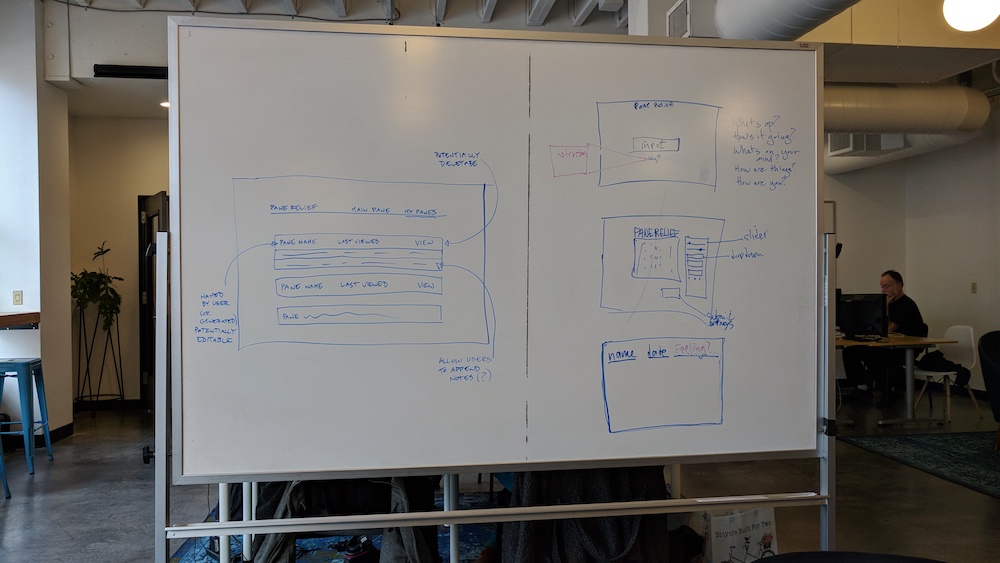 POTENTIALLY
DELETABLE
PANE RELIEF MAIN PANE MY PANES
PANE NAME LAST VIEWED VIEW
PANE NAME LAST VIEWED VIEW
PANE
NAMED
BY USER
(OR
GENERATED)
POTENTIALLY
EDITABLE
ALLOW USERS
TO APPEND
NOTES (?)
Pane Relief
input
What's up?
How's it going?
What's on your
mind?
How are things?
How are you?
PANE RELIEF
slider
dropdown
name date Feeling?
Bicycle Built For Two